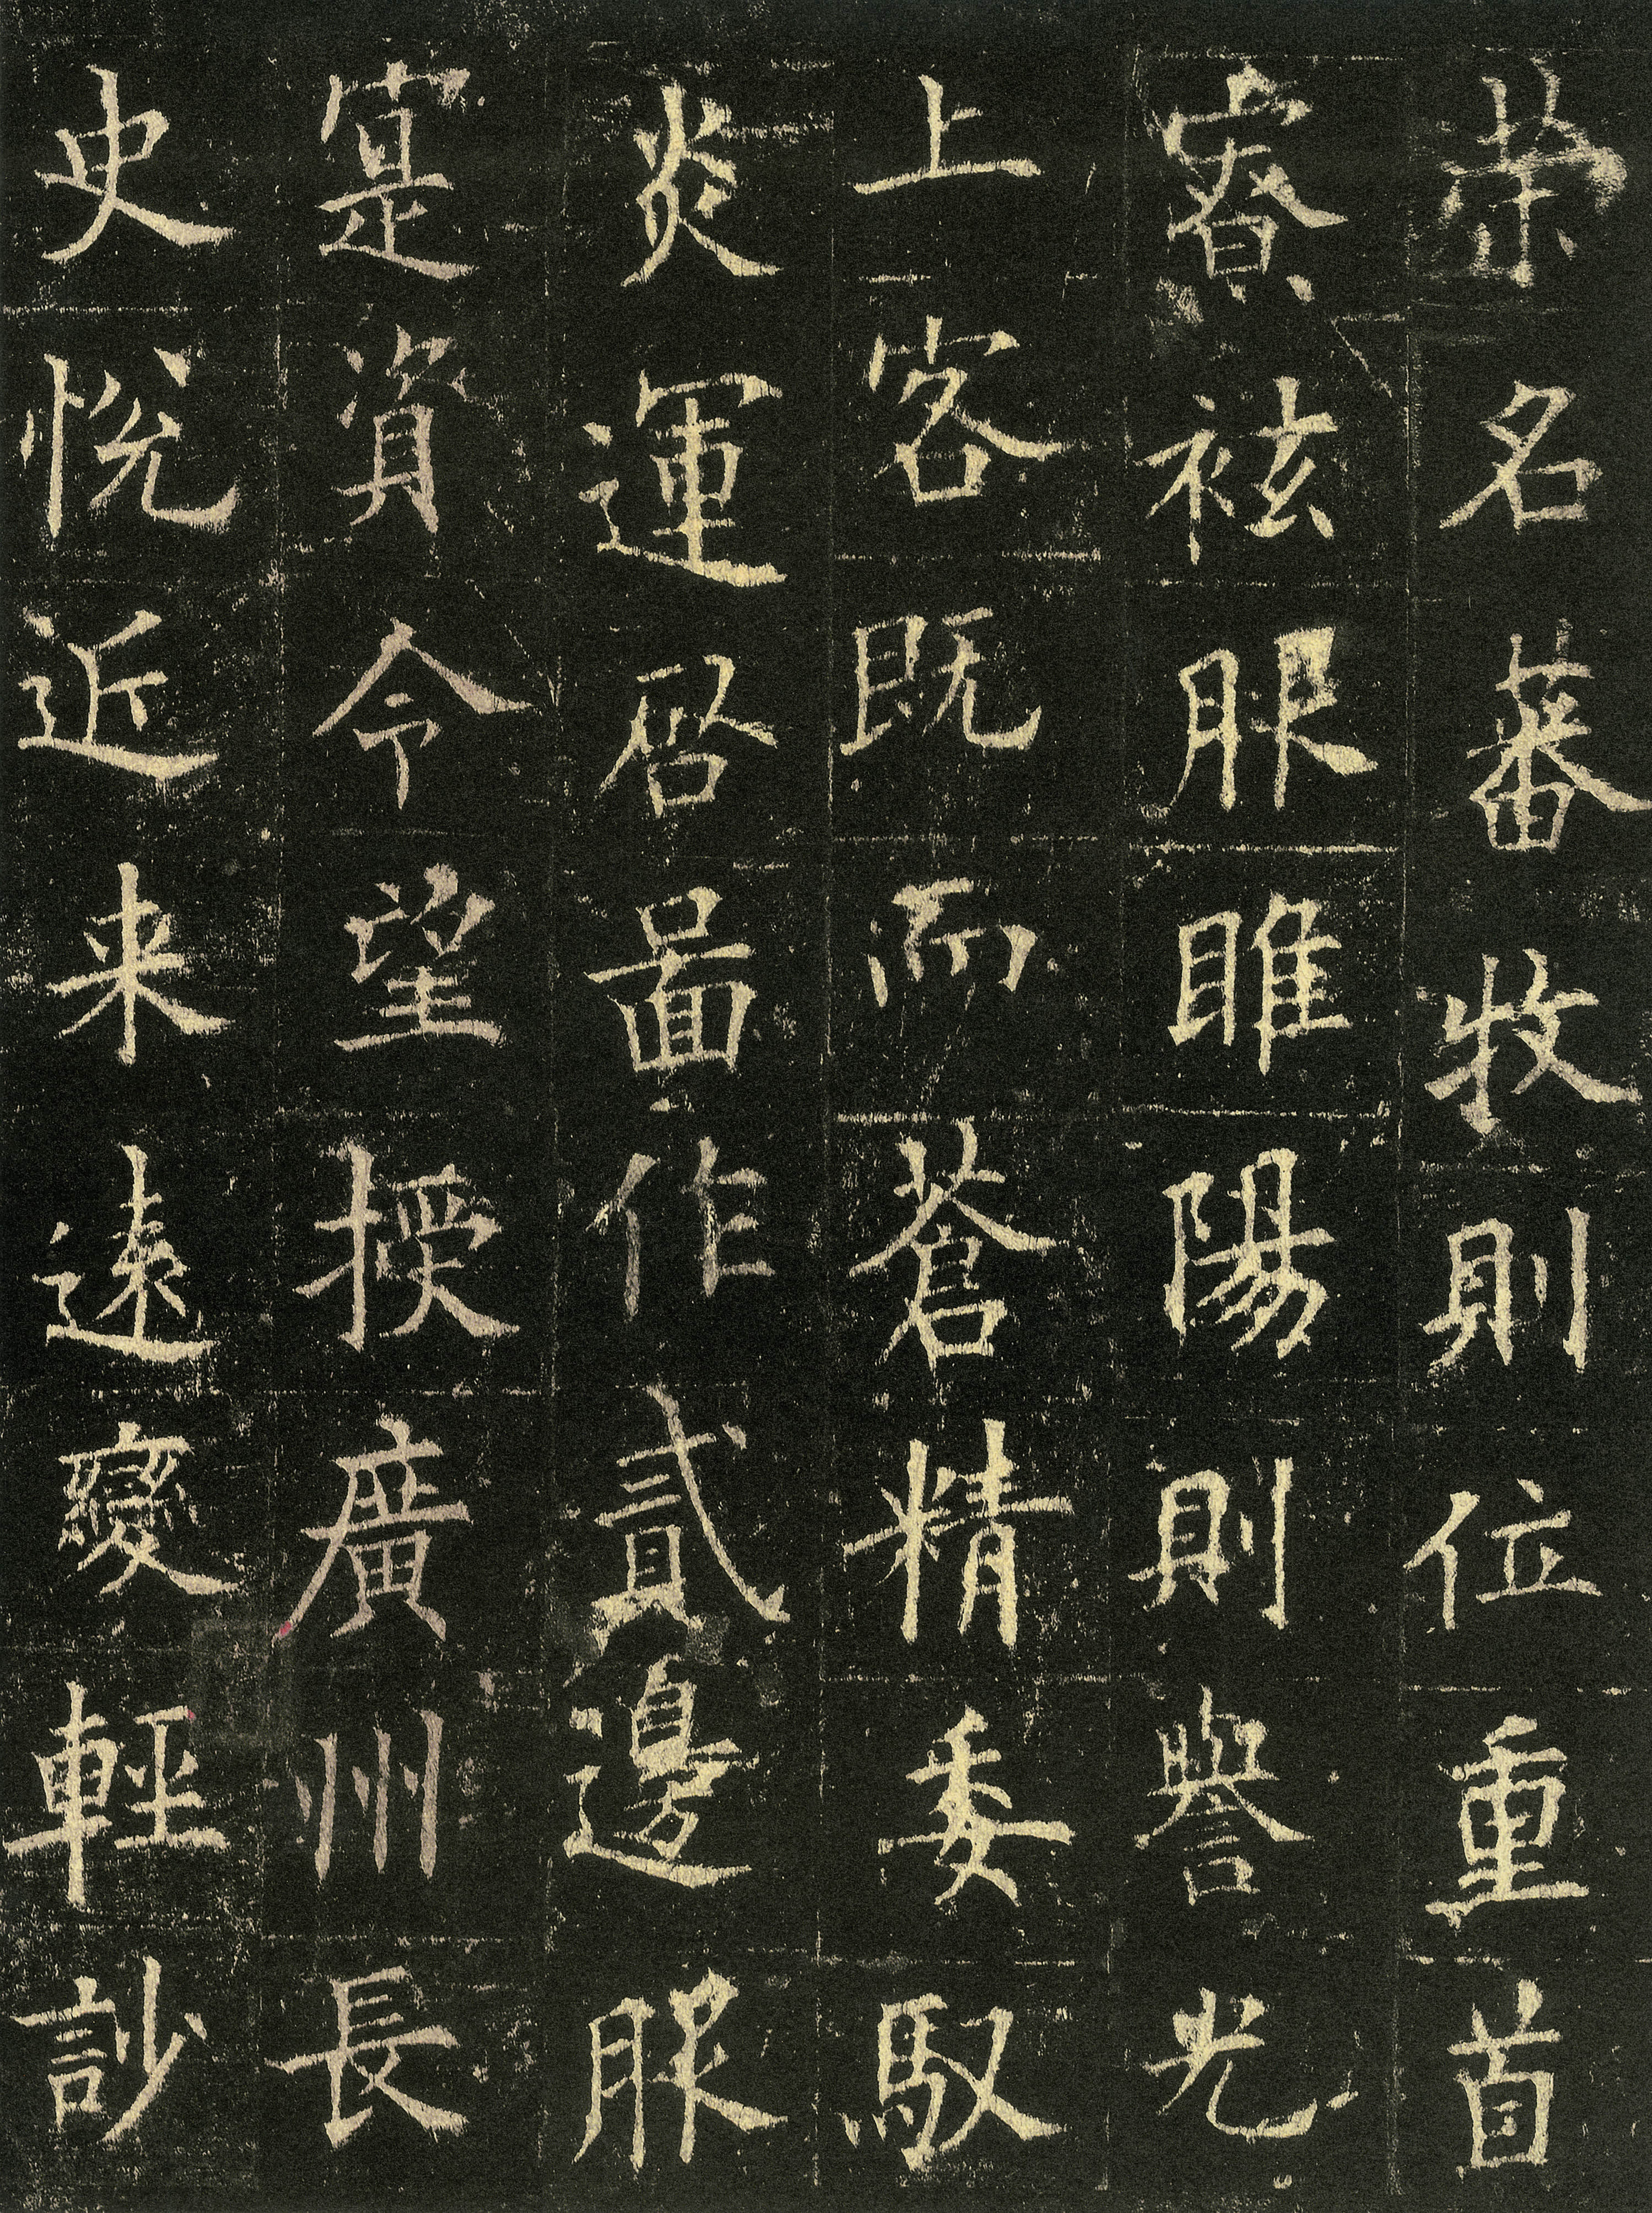 榮名蕃牧則位重首
寮袨服睢陽則譽光
上客既而蒼精委馭
炎運啓圖作貳邊服
寔資令望授廣州長
史悅近来遠變輕訬